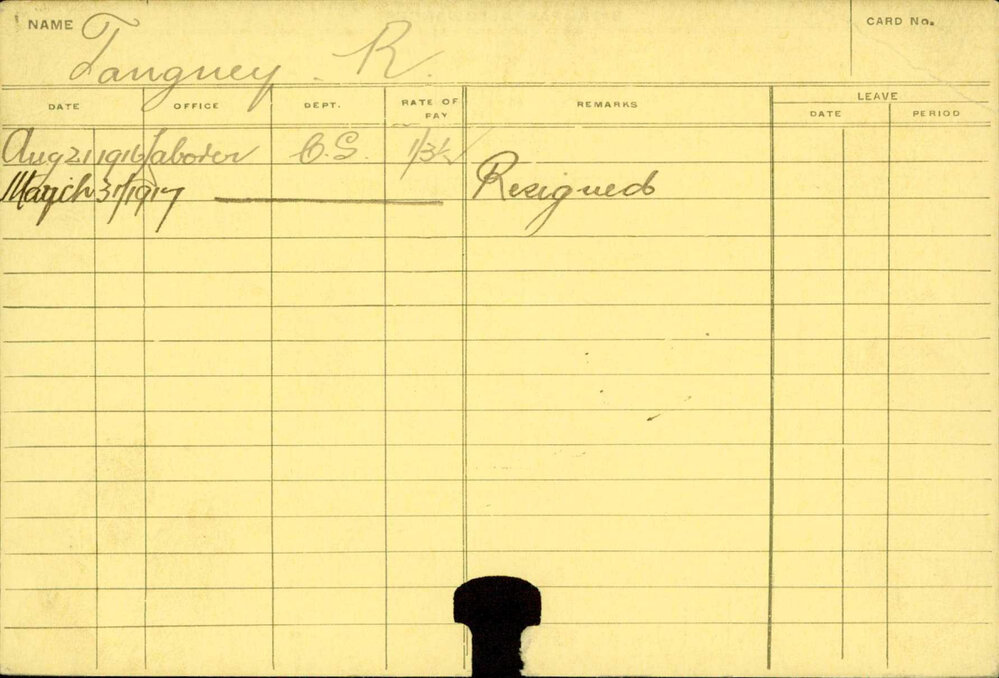 NAME Tangney. R. CARD No.
DATE OFFICE DEPT. RATE OF PAY REMARKS LEAVE
DATE PERIOD
Aug 21 1916 Laborer C.S. 1/3½
March 31/1917 Resigned